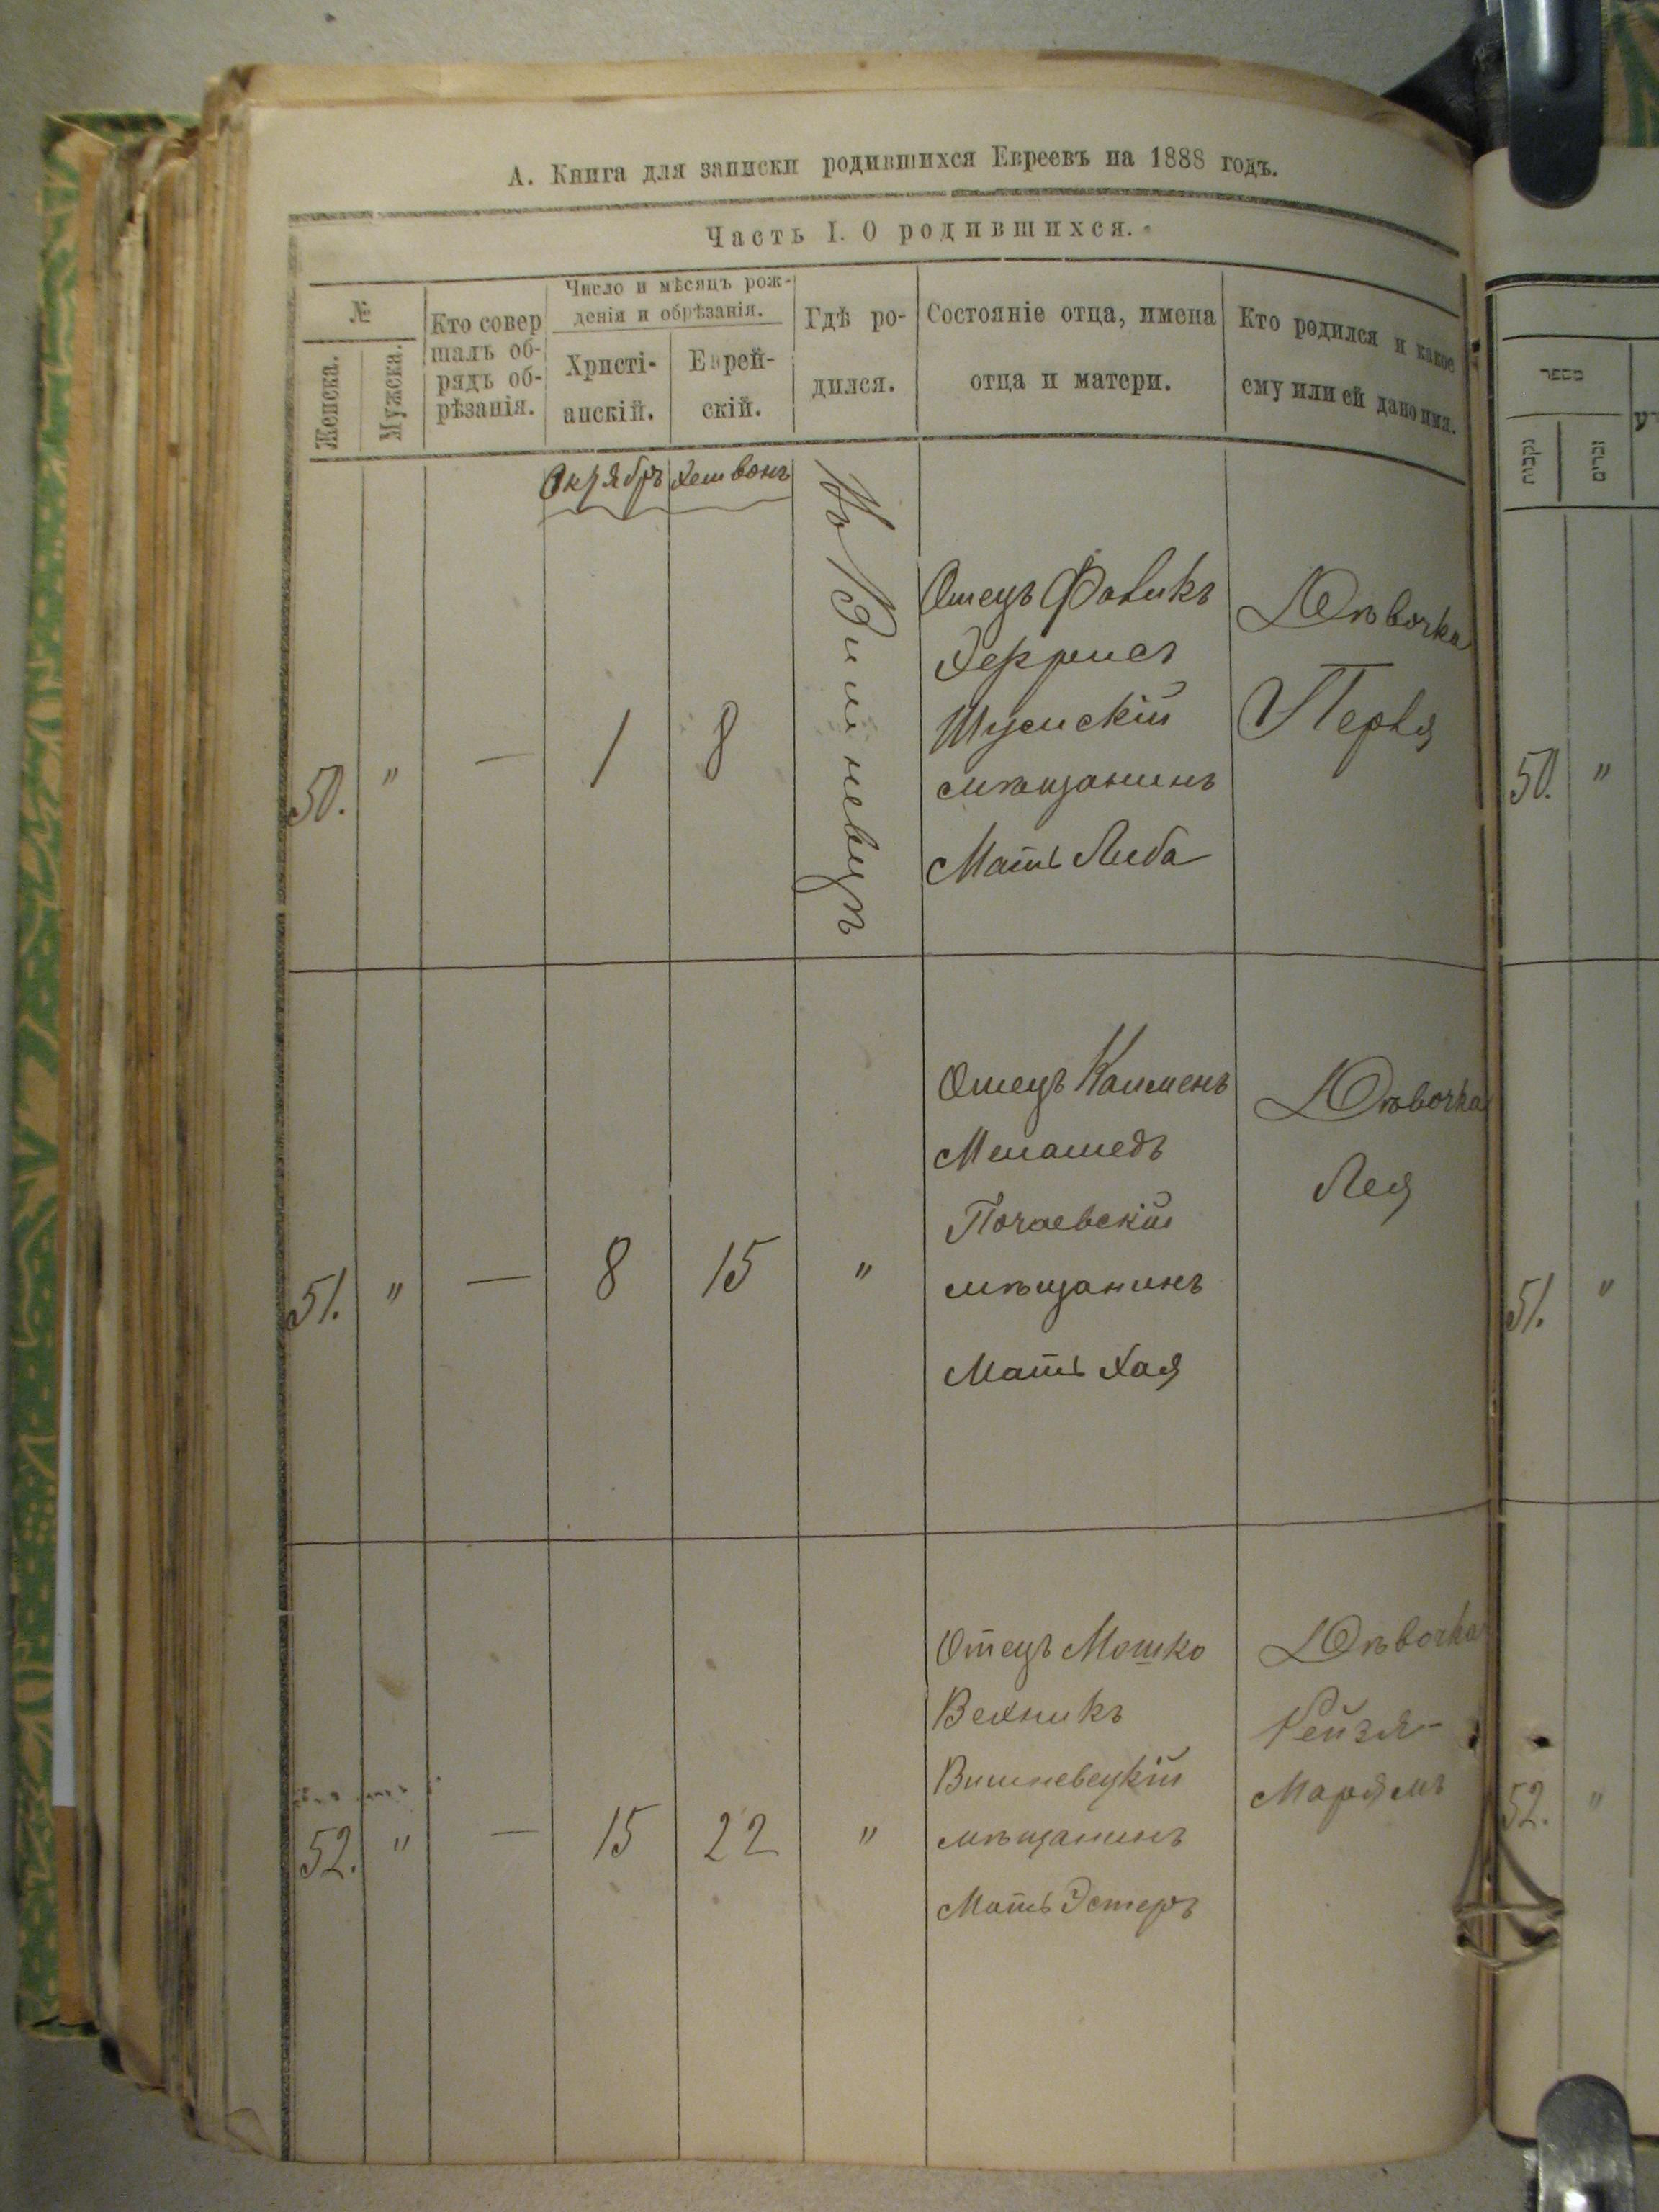 А. Книга для записки родившихся Евреевъ на 1888 годъ.
Часть I. О родившихся.
№
Женска.
Мужска.
Кто совер
шалъ об-
рядъ об-
рѣзанія.
Число и мѣсяцъ рож-
денія и обрѣзанія.
Христі-
анскій.
Еврей-
скій.
Гдѣ ро-
дился.
Состояніе отца, имена
отца и матери.
Кто родился и какое
ему или ей дано имя.
Октябрь Хешвонъ
50. " — 1 8
Въ Вишневцѣ
Отецъ Фавикъ
Шумскій
мѣщанинъ
Мать Либа
Дѣвочка
Перля
51. " — 8 15 "
Отецъ
Почаевскій
мѣщанинъ
Мать Хая
Дѣвочка
Лея
52. " — 15 22 "
Отецъ Мошко
Вехникъ
Вишневецкій
мѣщанинъ
Мать Эстеръ
Дѣвочка
Рейзя-
Марямъ
מספר
נקבות
זכרים
50. "
51. "
52. "